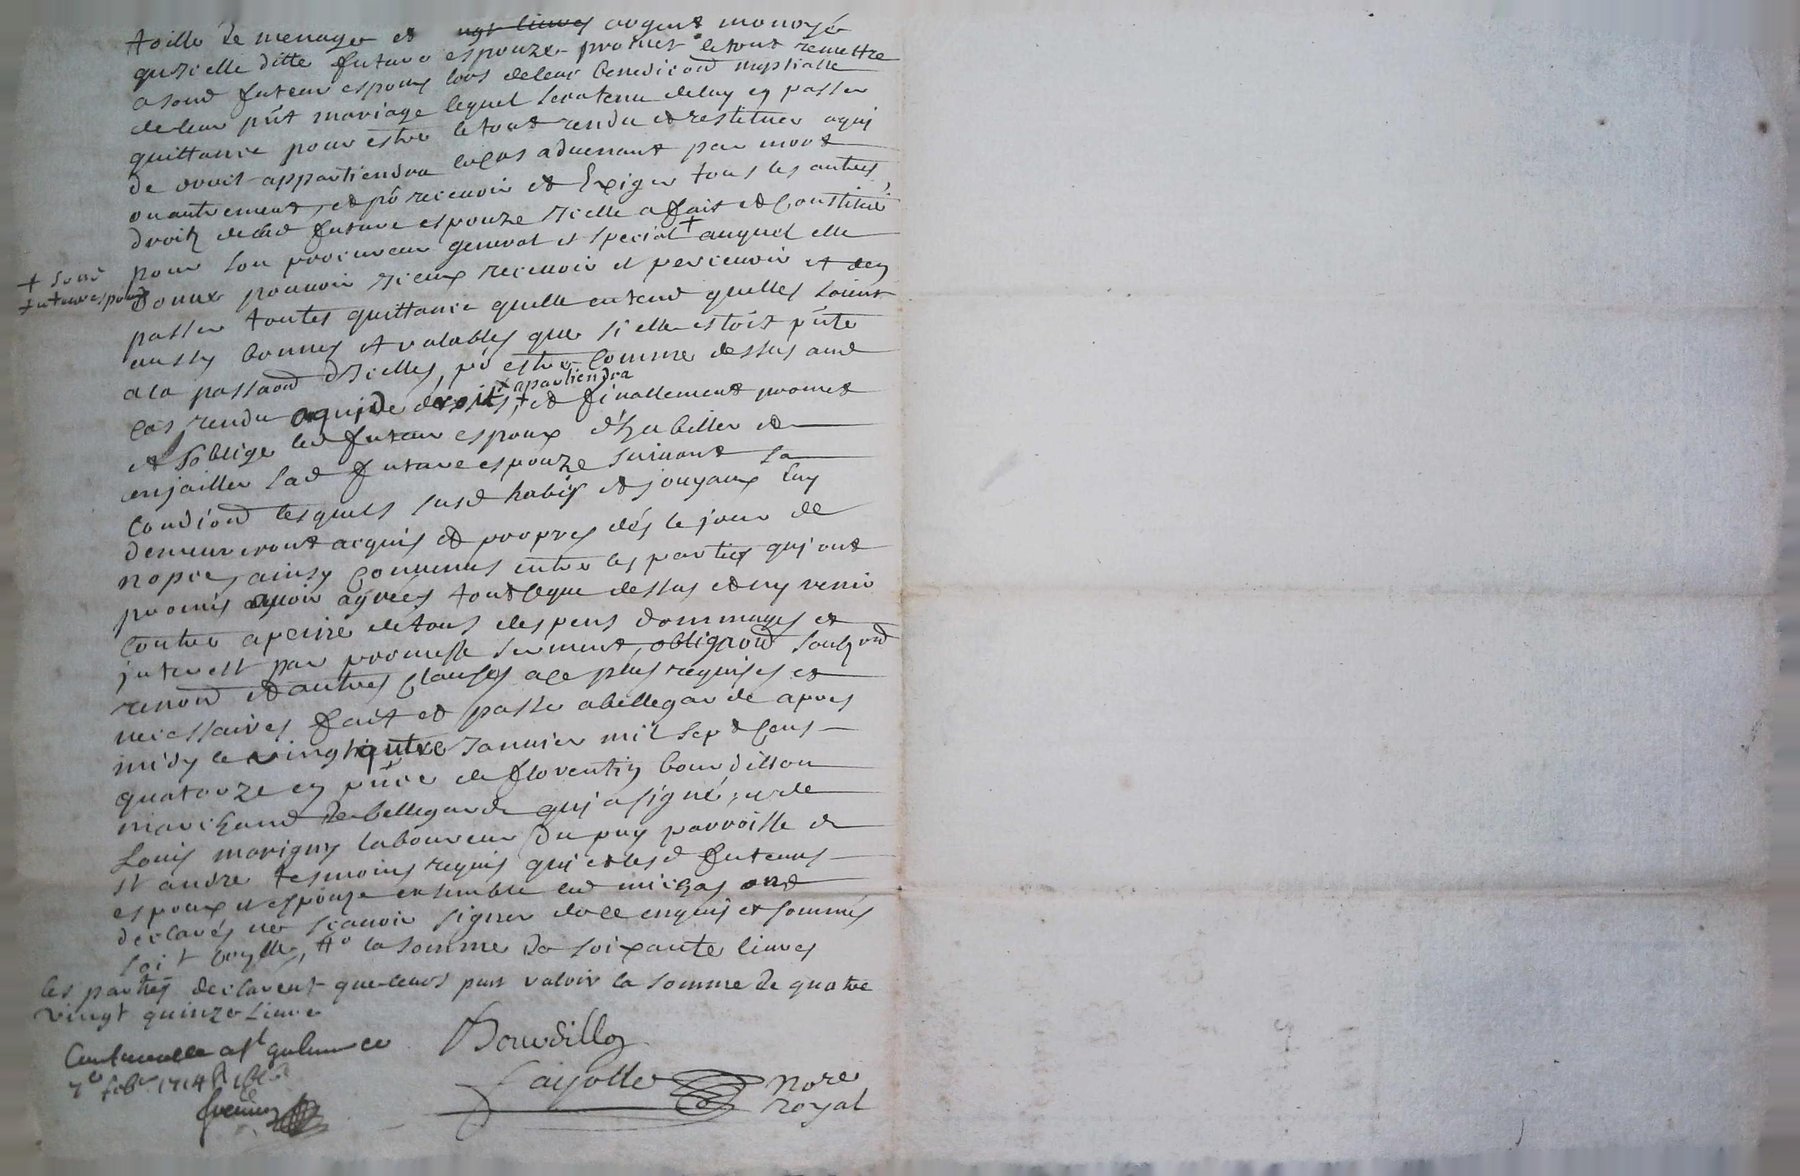 toille de menage et vgt liures argent monoyé
quicelle ditte future espouze promet le tout remettre
a sond futeur espoux lors deleur benediciond nuptialle
deleur pñt mariage lequel sera tenu deluy en passer
quittance pour estre le tout rendu et restituer a qui
de droit appartiendra le cas aduenant par mort
ou autrement, et pô receuoir et Exiger tous les autres
droits de lad future espouze Icelle a fait et Constitué
pour son procureur general et special + auquel elle
+ sond
futeur espoux
donne pouuoir Iceux receuoir et perceuoir et den
passer toutes quittance quelle entend quelles soient
aussy bonnes et valables que si elle estoit pñte
a la passaond d'Icelles, pô estre Comme dessus aud
cas rendu a qui de droit +, et finallement promet
+ apartiendra
et s'oblige led futeur espoux d'habiller et
enjailler lad future espouze suiuant sa
Condiond lesquels susd habis et jouyaux luy
demeureront acquis et propres dés le jour de
nopces, ainsy Conuenus entre les parties qui ont
promis auoir agreés tout ceque dessus et ny venir
Contre a peine detous despens dommages et
interest par promesse serment, obligaond soubzond
renond et autres Clauses a ce plus requises et
necessaires fait et passé a bellegarde apres
midy le vingt quatre Januier mil sept Cens
quatorze en pñce de florentin bourdillon
marchand de bellegarde qui a signé, et de
Louis marigny laboureur du puy parroisse de
st andre tesmoins requis qui et lesd futeurs
espoux et espouze ensemble led michas ond
declarés ne scauoir signer de ce enquis et sommés
soit la somme de soixante liures
les parties declarent que leurs peut valoir la somme de quatre
vingt quinze liures
Bourdillon
7e febr 1714
fayolle nore
royal